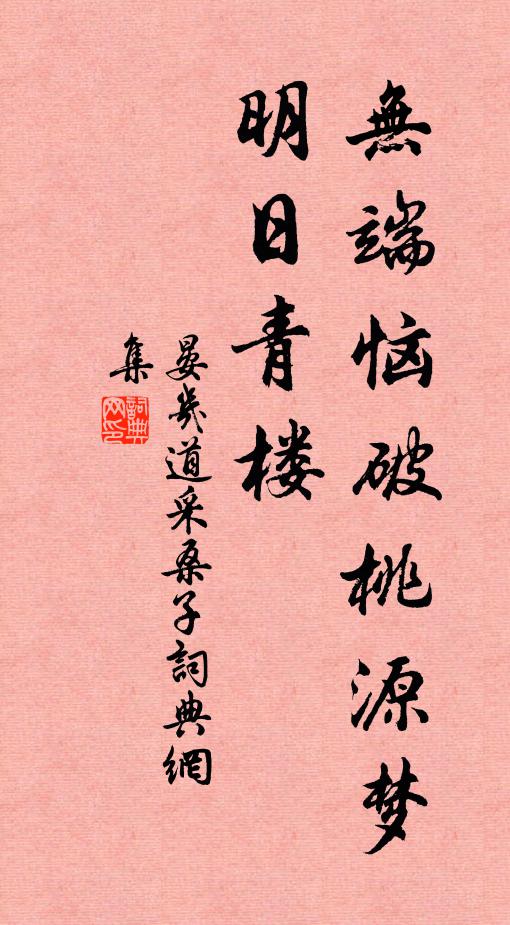 無端恼破桃源梦
明日青楼
晏幾道采桑子詞典網
集
詞典
网印